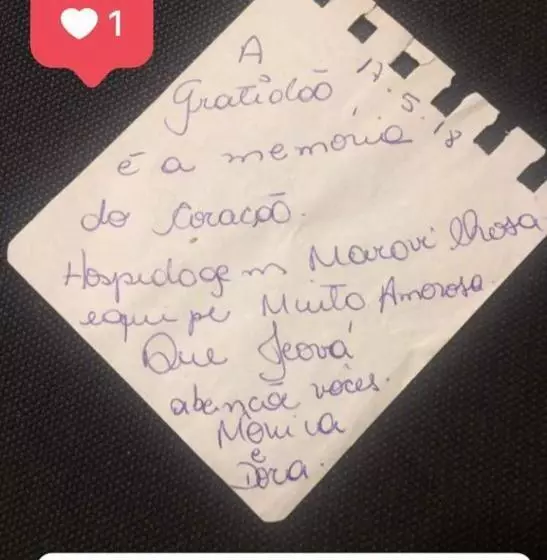 1
A
Gratidão
17.5.18
é a memória
do Coração.
Hospedagem Maravilhosa
equipe Muito Amorosa.
Que Jeová
abençoe voces.
Mônica
e
Dora.